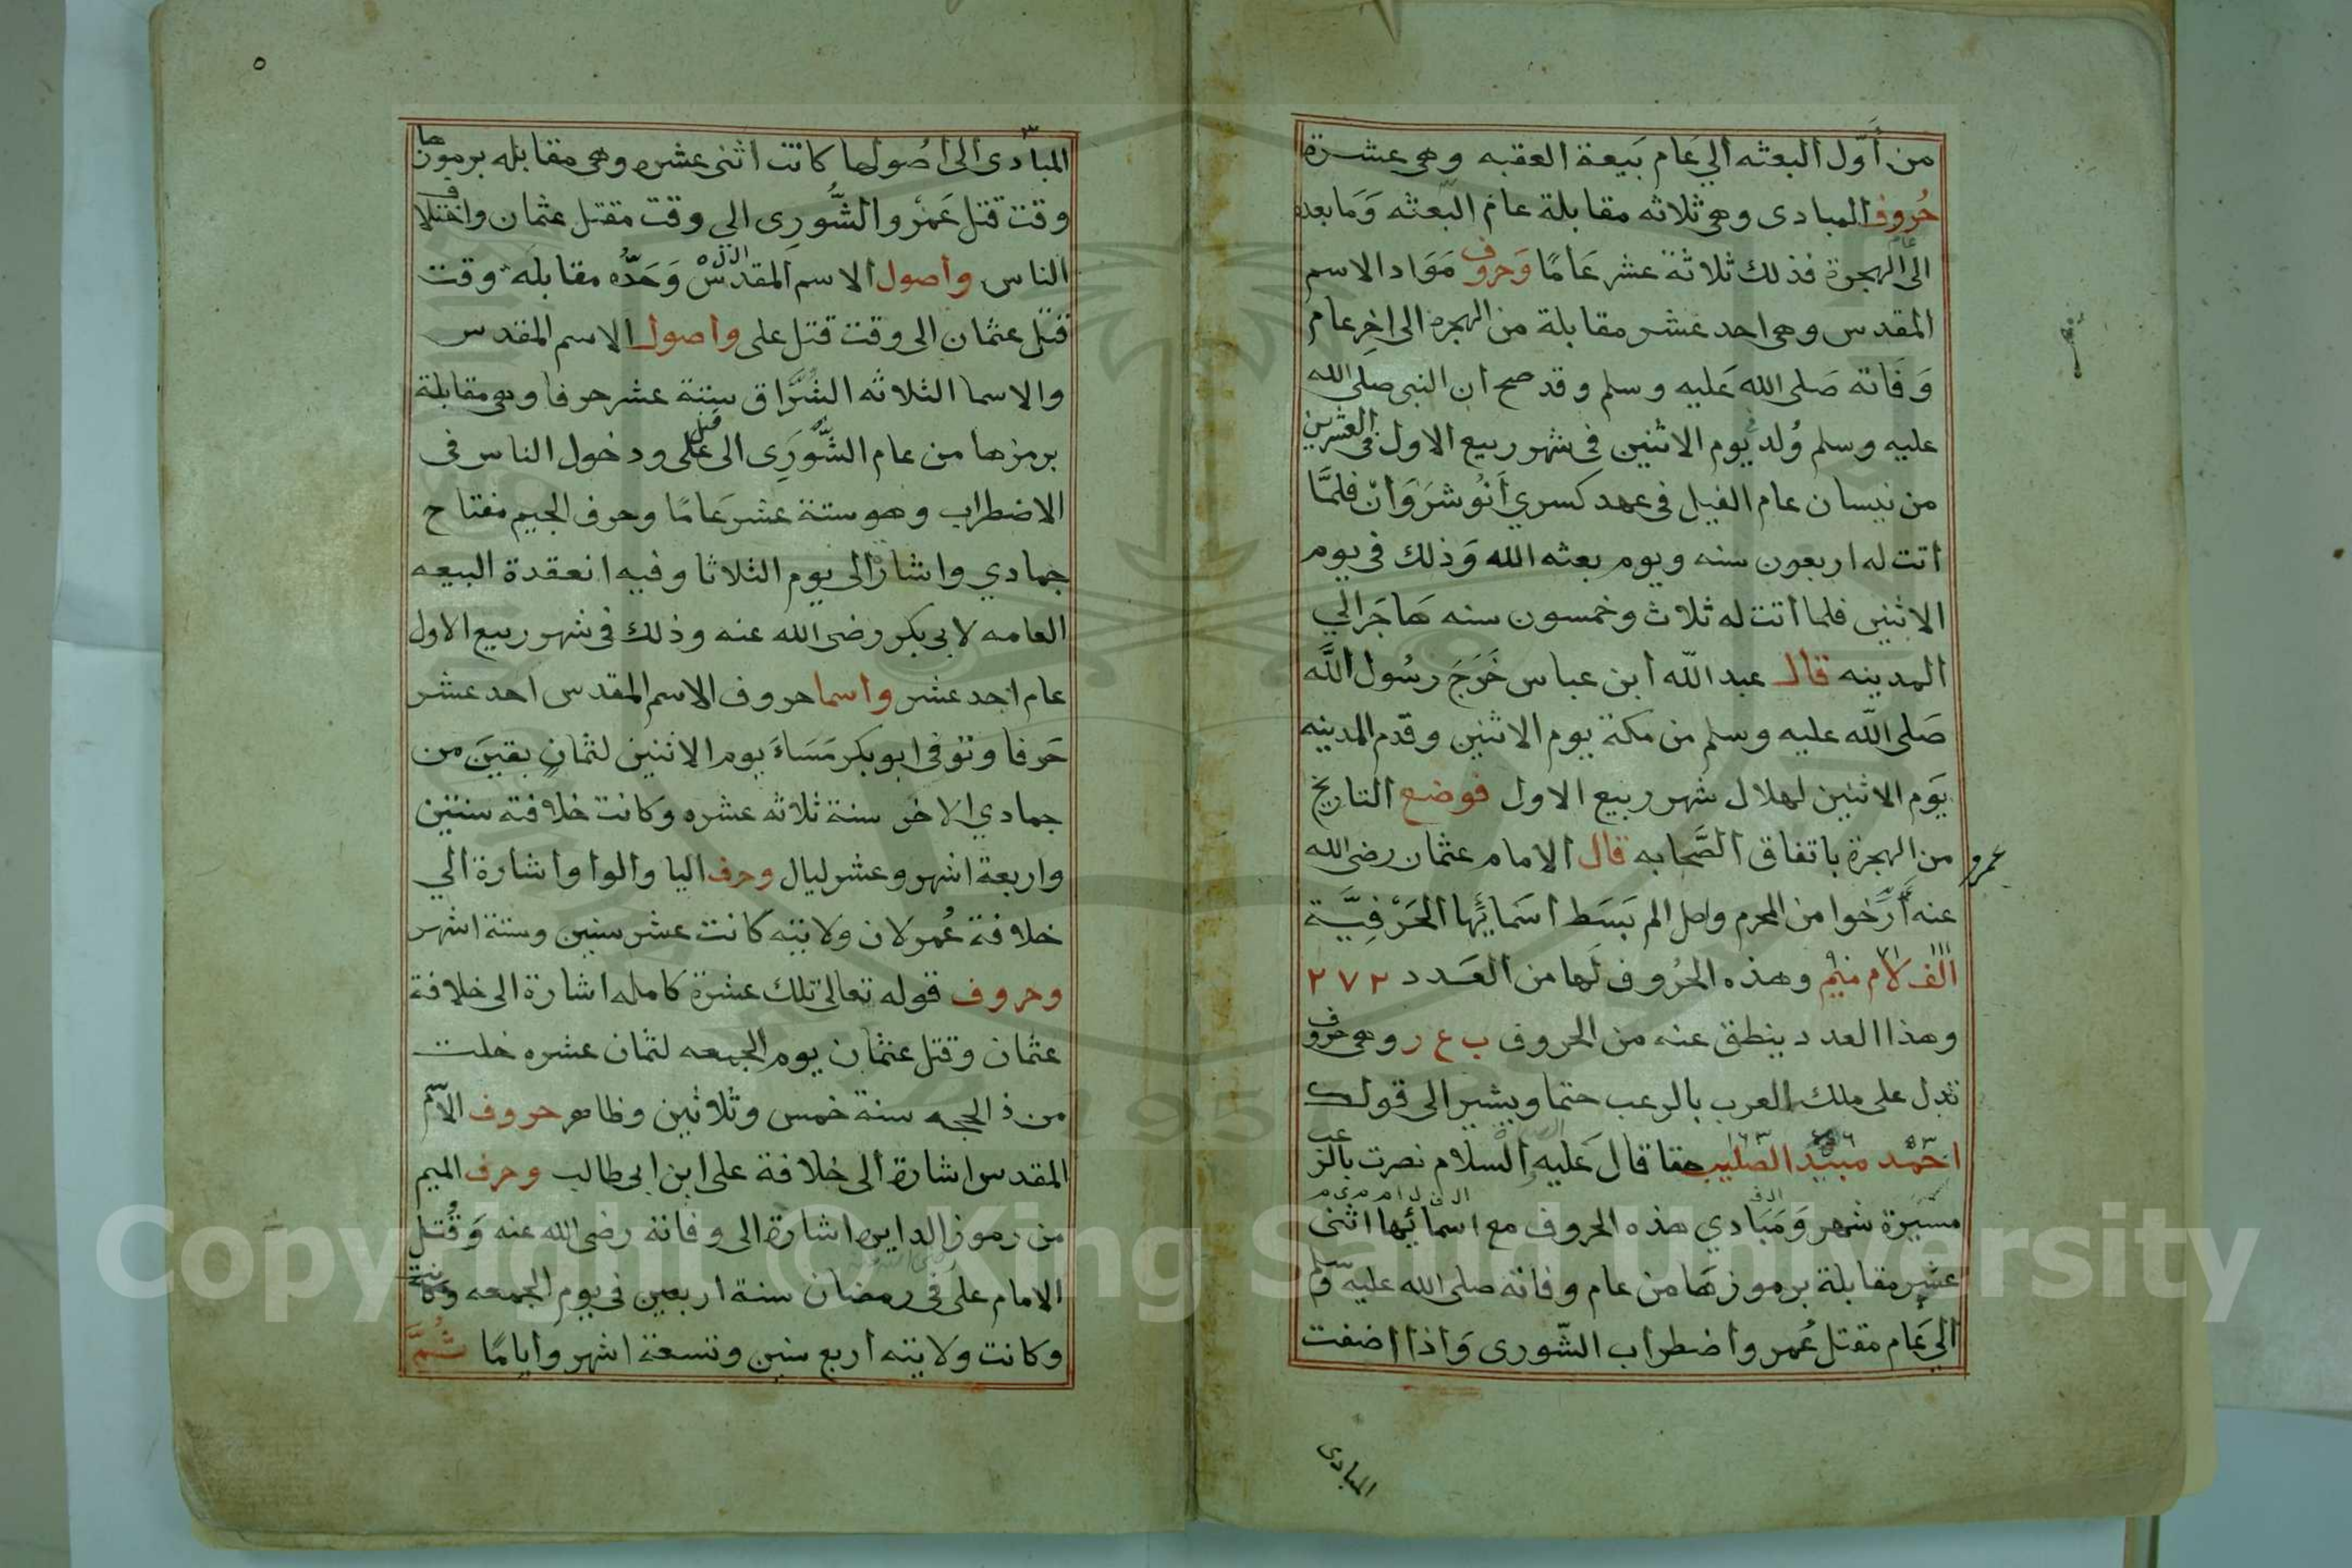 من أَوّل البعثه الي عَام بَيعة العقبه وهي عشرة
حُروف المبادى وهي ثلاثه مقابلة عام البعثه وَمَا بعده
الى الهجرة فذلك ثلاثة عشر عَامًا وَحروف مَوَاد الاسم
المقدس وهي احد عشر مقابلة من الهجرة الى اخِر عام
وَفَاته صَلى الله عَليه وسلم وقد صح ان النبي صلى الله
عليه وسلم وُلد يوم الاثنين في شهر ربيع الاول في العشرين
من نيسان عام الفيل في عهد كسري أنُوشَروَان فلمَّا
اتت له اربعون سنه ويوم بعثه الله وَذلك في يوم
الاثنين فلما اتت له ثلاث وخمسون سنه هَاجَر الي
المدينه قال عبد الله ابن عباس خَرَجَ رسُول اللَّه
صَلى الله عليه وسلم من مكة يوم الاثنين وقدم المدينه
يَوم الاثنين لهلال شهر ربيع الاول فوضع التاريخ
من الهجرة باتفاق الصَّحابه قال الامام عثمان رضى الله
عمرو
عنه أَرّخوا من المحرم واصل الم بَسَط اسَمَائِها الحَرْفِيَّة
الف لام ميم وهذه الحُروف لَها من العَدد ٢٧٢
وهذا العدد ينطق عنه من الحروف ب ع ر وهي حروف
تدل على ملك العرب بالرعب حتما ويشير الى قولك
احمَد مبيد الصليب حقا قال عَليه السلام نصرت بالرعب
مسيَرة شهر وَمَبَادي هذه الحروف مع اسمائيها اثنى
عشر مقابلة برموزهَا من عام وفاته صلى الله عليه وسلم
الي عَام مقتل عُمر واضطراب الشّورى وَاذا اضفت
المبادى
٥
المبادى الى اصُولها كانت اثنى عشره وهي مقابله برموزها
وقت قتل عَمرو الشُّورى الى وقت مقتل عثمان واختلاف
الناس واصول الاسم المقدس وَحَدُّه مقابلَة وقت
قتل عثمان الى وقت قتل على واصول الاسم المقدس
والاسما الثلاثه ستة عشر حرفا وهي مقابلة
برمزها من عام الشُّورَى الى قتل على ودخول الناس فى
الاضطراب وهو ستة عشر عَامًا وحرف الجيم مفتاح
جمادي واشارة الى يوم الثلاثا وفيه انعقدة البيعه
العامه لابى بكر رضى الله عنه وذلك في شهر ربيع الاول
عام احد عشر واسما حروف الاسم المقدس احد عشر
حَرفا وتوفى ابو بكر مَسَاءَ يوم الاثنين لثمانٍ بقينَ من
جمادي الاخر سنة ثلاثه عشره وكانت خلافته سنتين
واربعة اشهر وعشر ليال وحرف اليا والواو اشارة الي
خلافة عُمر لان ولايته كانت عشر سنين وستة اشهر
وحروف قوله تعالى تلك عشرة كامله اشارة الى خلافة
عثمان وقتل عثمان يوم الجمعه لثمان عشره خلت
من ذ الحجه سنة خمس وثلاثين وظاهر حروف الاسم
المقدس اشارة الى خلافة على ابن ابى طالب وحرف الميم
من رموز الدايره اشارة الى وفاته رضى الله عنه وَقُتل
الامام على فى رمضان سنة اربعين فى يوم الجمعه
وكانت ولايته اربع سنين وتسعة اشهر وايامًا ثُمَّ
Copyright © King Saud University